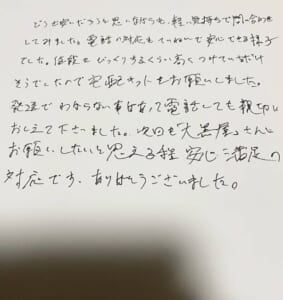 どうせ安いだろうと思いながらも、軽い気持ちで問い合わせ
してみました。電話の対応もていねいで安心できる様子
でした。値段もびっくりするくらい高くつけていただけ
そうでしたので宅配キットをお願いしました。
発送でわからない事があって電話しても親切に
おしえて下さいました。次回も「大黒屋」さんに
お願いしたいと思える程安心満足の
対応です。ありがとうございました。